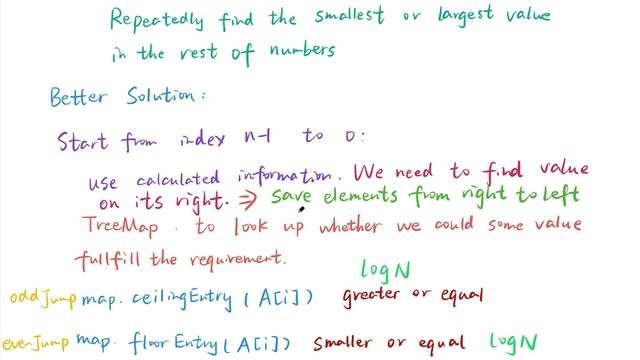 Repeatedly find the smallest or largest value
in the rest of numbers
Better Solution:
Start from index n-1 to 0:
use calculated information. We need to find value
on its right. ⇒ save elements from right to left
TreeMap. to look up whether we could some value
fullfill the requirement.
logN
oddJump map. ceilingEntry (A[i]) greater or equal
evenJump map. floorEntry (A[i]) smaller or equal logN